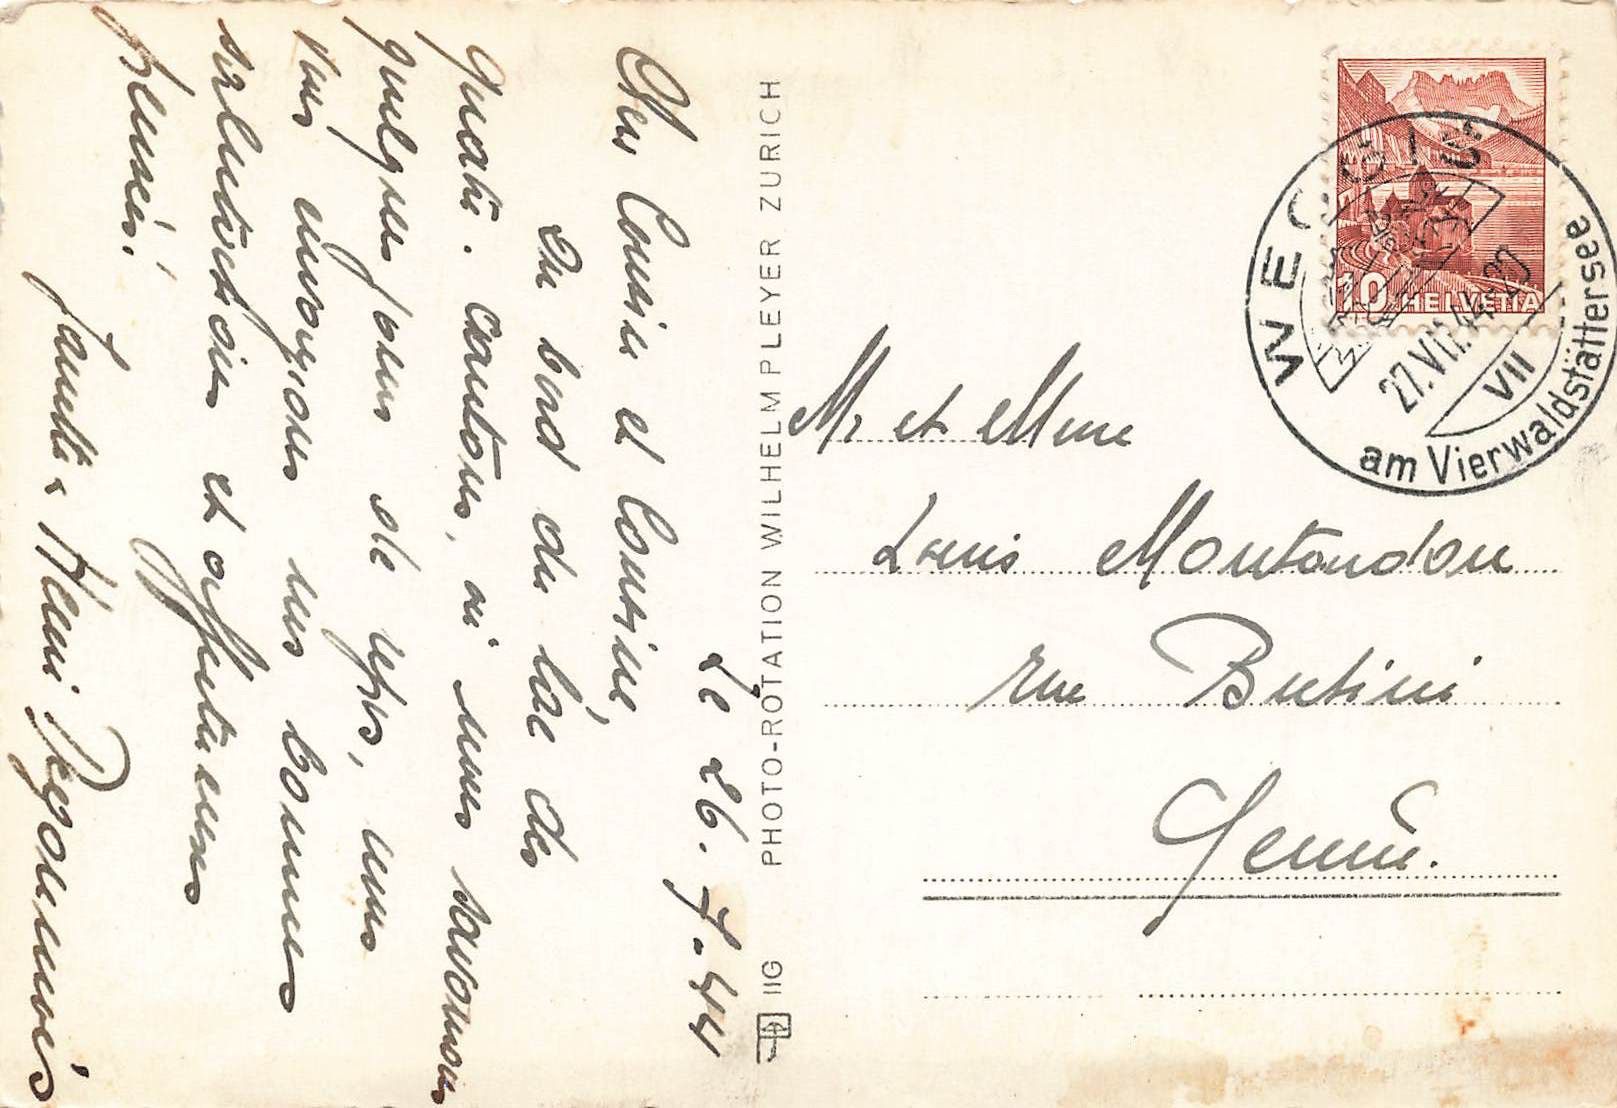 Le 26.7.44
Cher Cousin et Cousine,
Au bord du lac des
quatre Cantons, où nous savourons
quelques jours de repos, nous
vous envoyons nos bonnes
salutations et affectueuses
pensées.
Famille Henri Degoumois
PHOTO-ROTATION WILHELM PLEYER ZURICH
IIG
10 HELVETIA
WEGGIS
27.VII.44
VII
am Vierwaldstättersee
Mr et Mme
Louis Montandon
rue Butini
Genève.